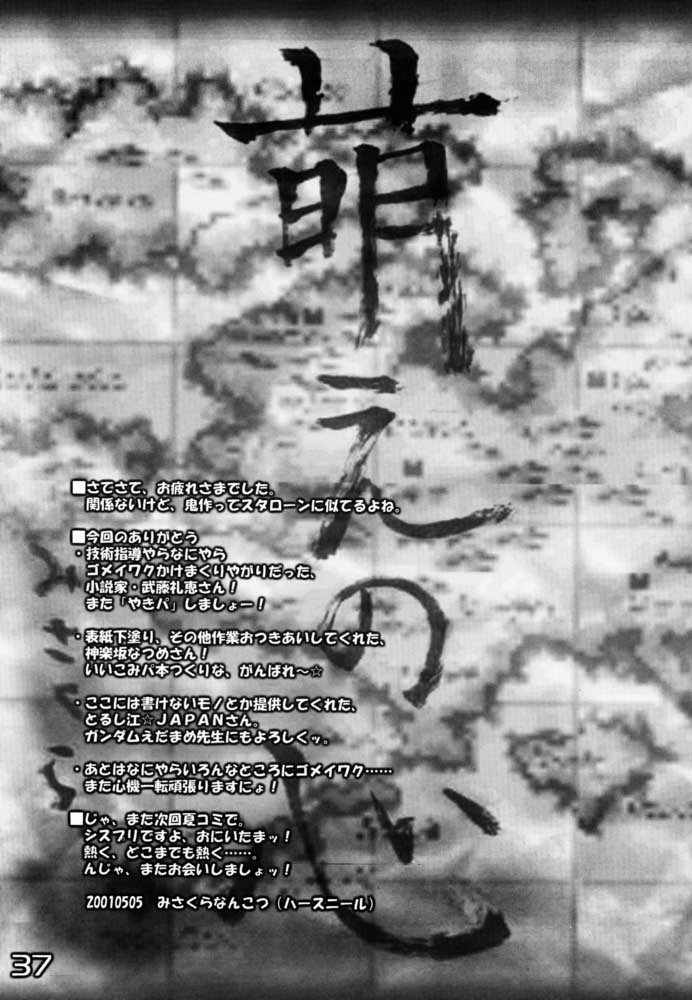 萌えの心
■さてさて、お疲れさまでした。
関係ないけど、鬼作ってスタローンに似てるよね。
■今回のありがとう
・技術指導やらなにやら
ゴメイワクかけまくりやがりだった、
小説家・武藤礼恵さん!
また「やきパ」しましょー!
・表紙下塗り、その他作業おつきあいしてくれた、
神楽坂なつめさん!
いいこみパ本つくりな、がんばれ~☆
・ここには書けないモノとか提供してくれた、
とるし江☆JAPANさん。
ガンダムえだまめ先生にもよろしくッ。
・あとはなにやらいろんなところにゴメイワク……
また心機一転頑張りますにょ!
■じゃ、また次回夏コミで。
シスプリですよ、おにいたまッ!
熱く、どこまでも熱く……。
んじゃ、またお会いしましょッ!
20010505 みさくらなんこつ(ハースニール)
37